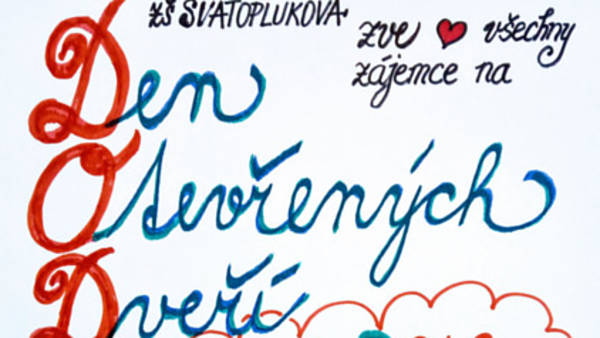 ZŠ SVATOPLUKOVA
zve ❤ všechny
zájemce na
Den
Otevřených
Dveří